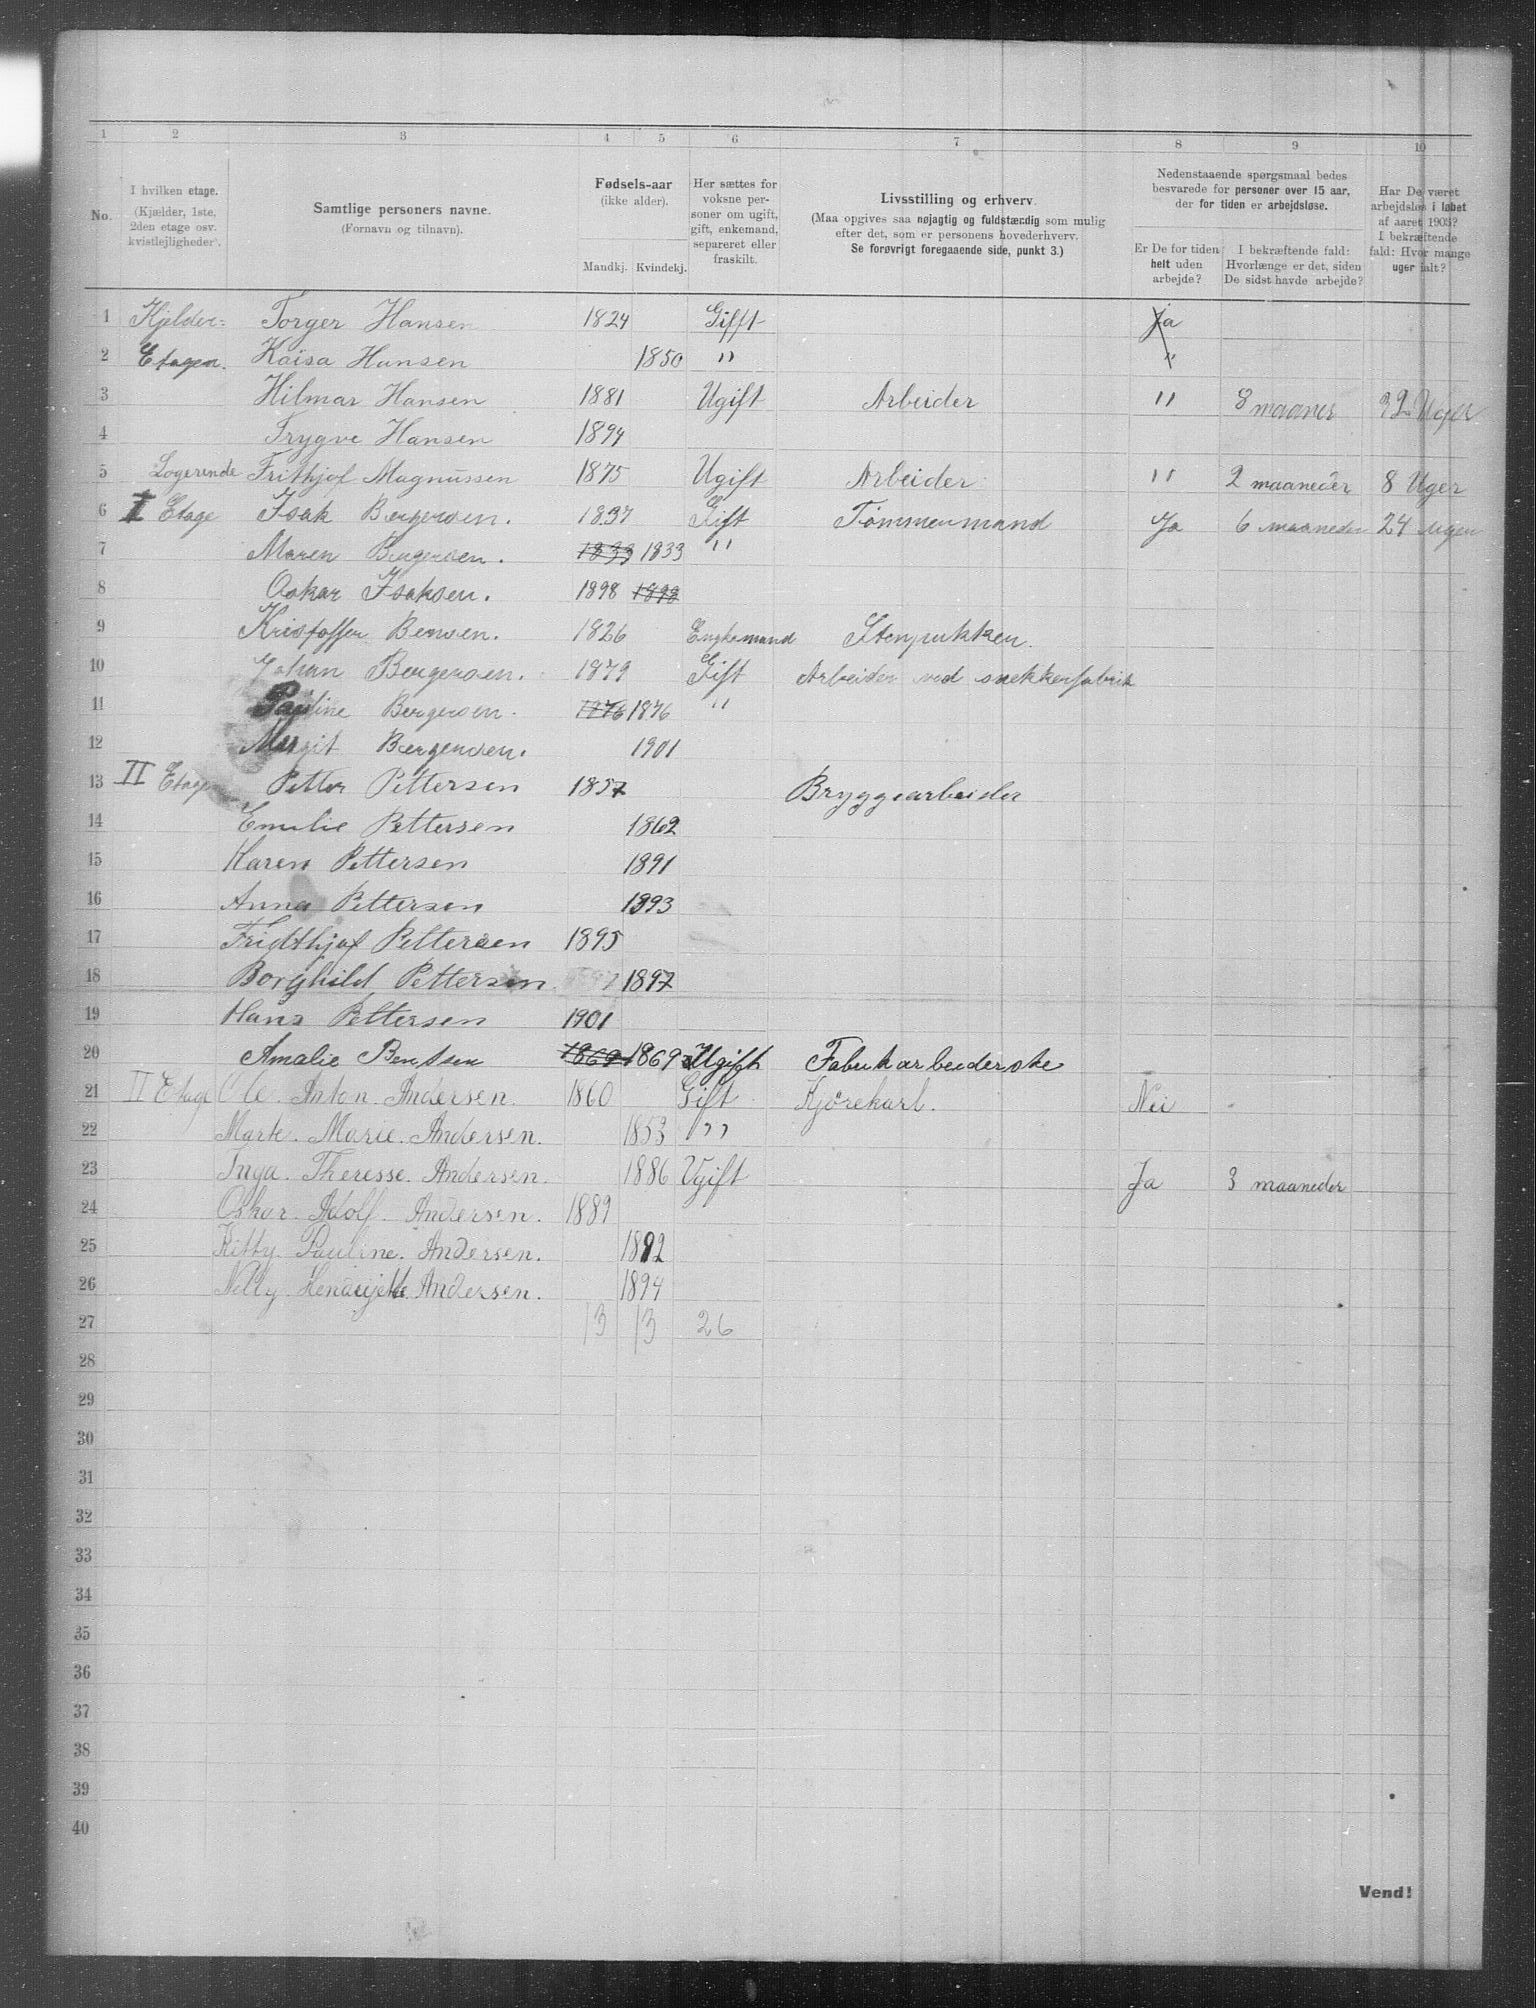 1 2 3 4 5 6 7 8 9 10
No.
I hvilken etage. (Kjælder, 1ste, 2den etage osv. kvistlejligheder).
Samtlige personers navne. (Fornavn og tilnavn).
Fødsels-aar (ikke alder).
Mandkj. Kvindekj.
Her sættes for voksne personer om ugift, gift, enkemand, separeret eller fraskilt.
Livsstilling og erhverv.
(Maa opgives saa nøjagtig og fuldstændig som mulig efter det, som er personens hovederhverv. Se forøvrigt foregaaende side, punkt 3.)
Nedenstaaende spørgsmaal bedes besvarede for personer over 15 aar, der for tiden er arbejdsløse.
Er De for tiden helt uden arbejde?
I bekræftende fald: Hvorlænge er det, siden De sidst havde arbejde?
Har De været arbejdsløs i løbet af aaret 1903? I bekræftende fald: Hvor mange uger ialt?
1 Kjelder= Torger Hansen 1824 Gifft Ja
2 Etagen. Kaisa Hansen 1850 " "
3 Hilmar Hansen 1881 Ugift Arbeider " 8 maaner 32 Uger
4 Trygve Hansen 1894
5 Logerende Frithjof Magnussen 1875 Ugift Arbeider " 2 maaneder 8 Uger
6 I Etage Isak Bergersen. 1837 Gift Tømmermand Ja 6 maaneder 24 ugen
7 Maren Bergersen. 1833 1833 "
8 Oskar Isaksen. 1898 1898
9 Kristoffer Bensen. 1826 Enkemand Stenpukker.
10 Johan Bergersen. 1879 Gift Arbeider ved snekkerfabrik
11 Pauline Bergersen. 1876 1876 "
12 Margit Bergersen. 1901
13 II Etage Petter Pettersen 1857 Bryggearbeider
14 Emilie Pettersen 1862
15 Karen Pettersen 1891
16 Anna Pettersen 1893
17 Fridthjof Pettersen 1895
18 Borghild Pettersen 1897 1897
19 Hans Pettersen 1901
20 Amalie Bentsen 1869 1869 Ugift Fabrikarbeiderske
21 II Etage Ole. Anton. Andersen. 1860 Gift Kjørekarl. Nei
22 Marte. Marie. Andersen. 1853 "
23 Inga. Theresse. Andersen. 1886 Ugift Ja 3 maaneder
24 Oskar. Adolf. Andersen. 1889
25 Kitty. Pauline. Andersen. 1892
26 Nelly. Hendrijette Andersen. 1894
27 13 13 26
28
29
30
31
32
33
34
35
36
37
38
39
40
Vend!